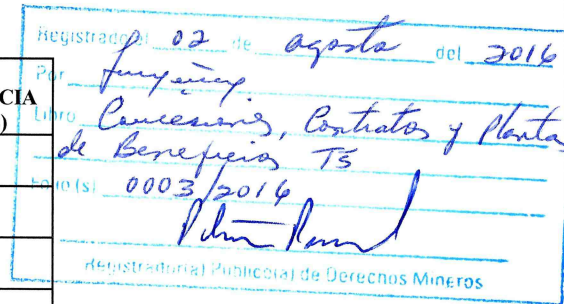 CIA
)
Registrado el 02 de agosto del 2016
Por
Libro Concesiones, Contratos y Plantas
de Beneficios T5
Folio (s) 0003/2016
Registrador(a) Publico(a) de Derechos Mineros